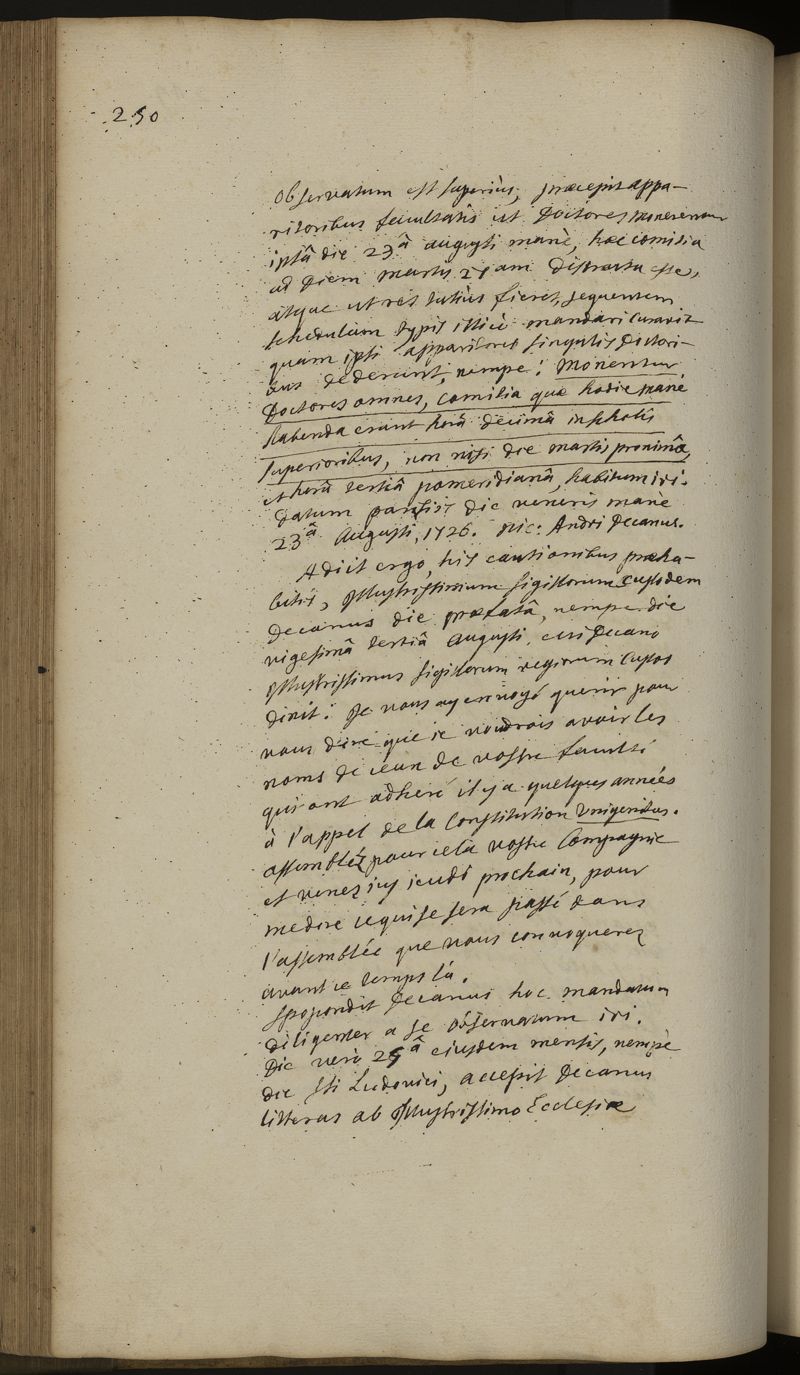 250
observatum est superius, præcepit appa-
ritoribus facultatis ut Doctores monerentur
ipsâ die 23â augusti manè, hæc comitia
ad diem martis 27am distracta esse,
atque ut res tutius fieret, sequentem
schedulam typis illicò mandari curavit
quam ipsi apparitores singulis doctori-
bus dederunt, nempe: Monentur
Doctores omnes, comitia quæ hodie mane
habenda erant horâ decimâ in scholis
superioribus, non nisi die martis proximâ,
et horâ tertiâ pomeridianâ, habitum iri.
datum parisiis die veneris manè
23â Augusti, 1726. Nic: Andri decanus.
Adiit ergo, his cautionibus præha-
bitis, illustrissimum sigillorum custodem
decanus die præfatâ, nempe die
vigesimâ tertiâ augusti, cui decano
illustrissimus sigillorum regiorum custos
dixit: Je vous ay envoyé querir pour
vous dire que ie voudrois avoir les
noms de ceux de vostre faculté
qui ont adheré il y a quelques années
à l'appel de la Constitution Unigenitus.
assemblés pour cela vostre Compagnie
et venez icy ieudi prochain, pour
me dire ce qui se sera passé dans
l'assemblée que vous convoquerez
avant ce temps là.
spopondit decanus hoc mandatum
diligenter a se observatum iri.
Die verò 25â eiusdem mensis, nempè
die Sti Ludovici, accepit decanus
litteras ab illustrissimo Ecclesiæ